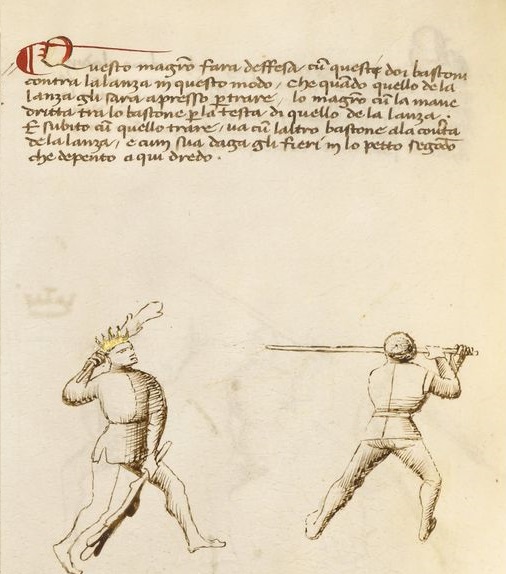 Questo magrõ fara deffesa cũ questi doi bastoni
contra la lanza in questo modo, che quãdo quello de la
lanza gli sara apresso ꝑ trare, lo magrõ cũ la mane
dritta tra lo bastone ꝑ la testa di quello de la lanza.
E subito cũ quello trare, va cũ laltro bastone a la couẽta
de la lanza, e cum sua daga gli fieri in lo petto segõdo
che depento o qui dredo.